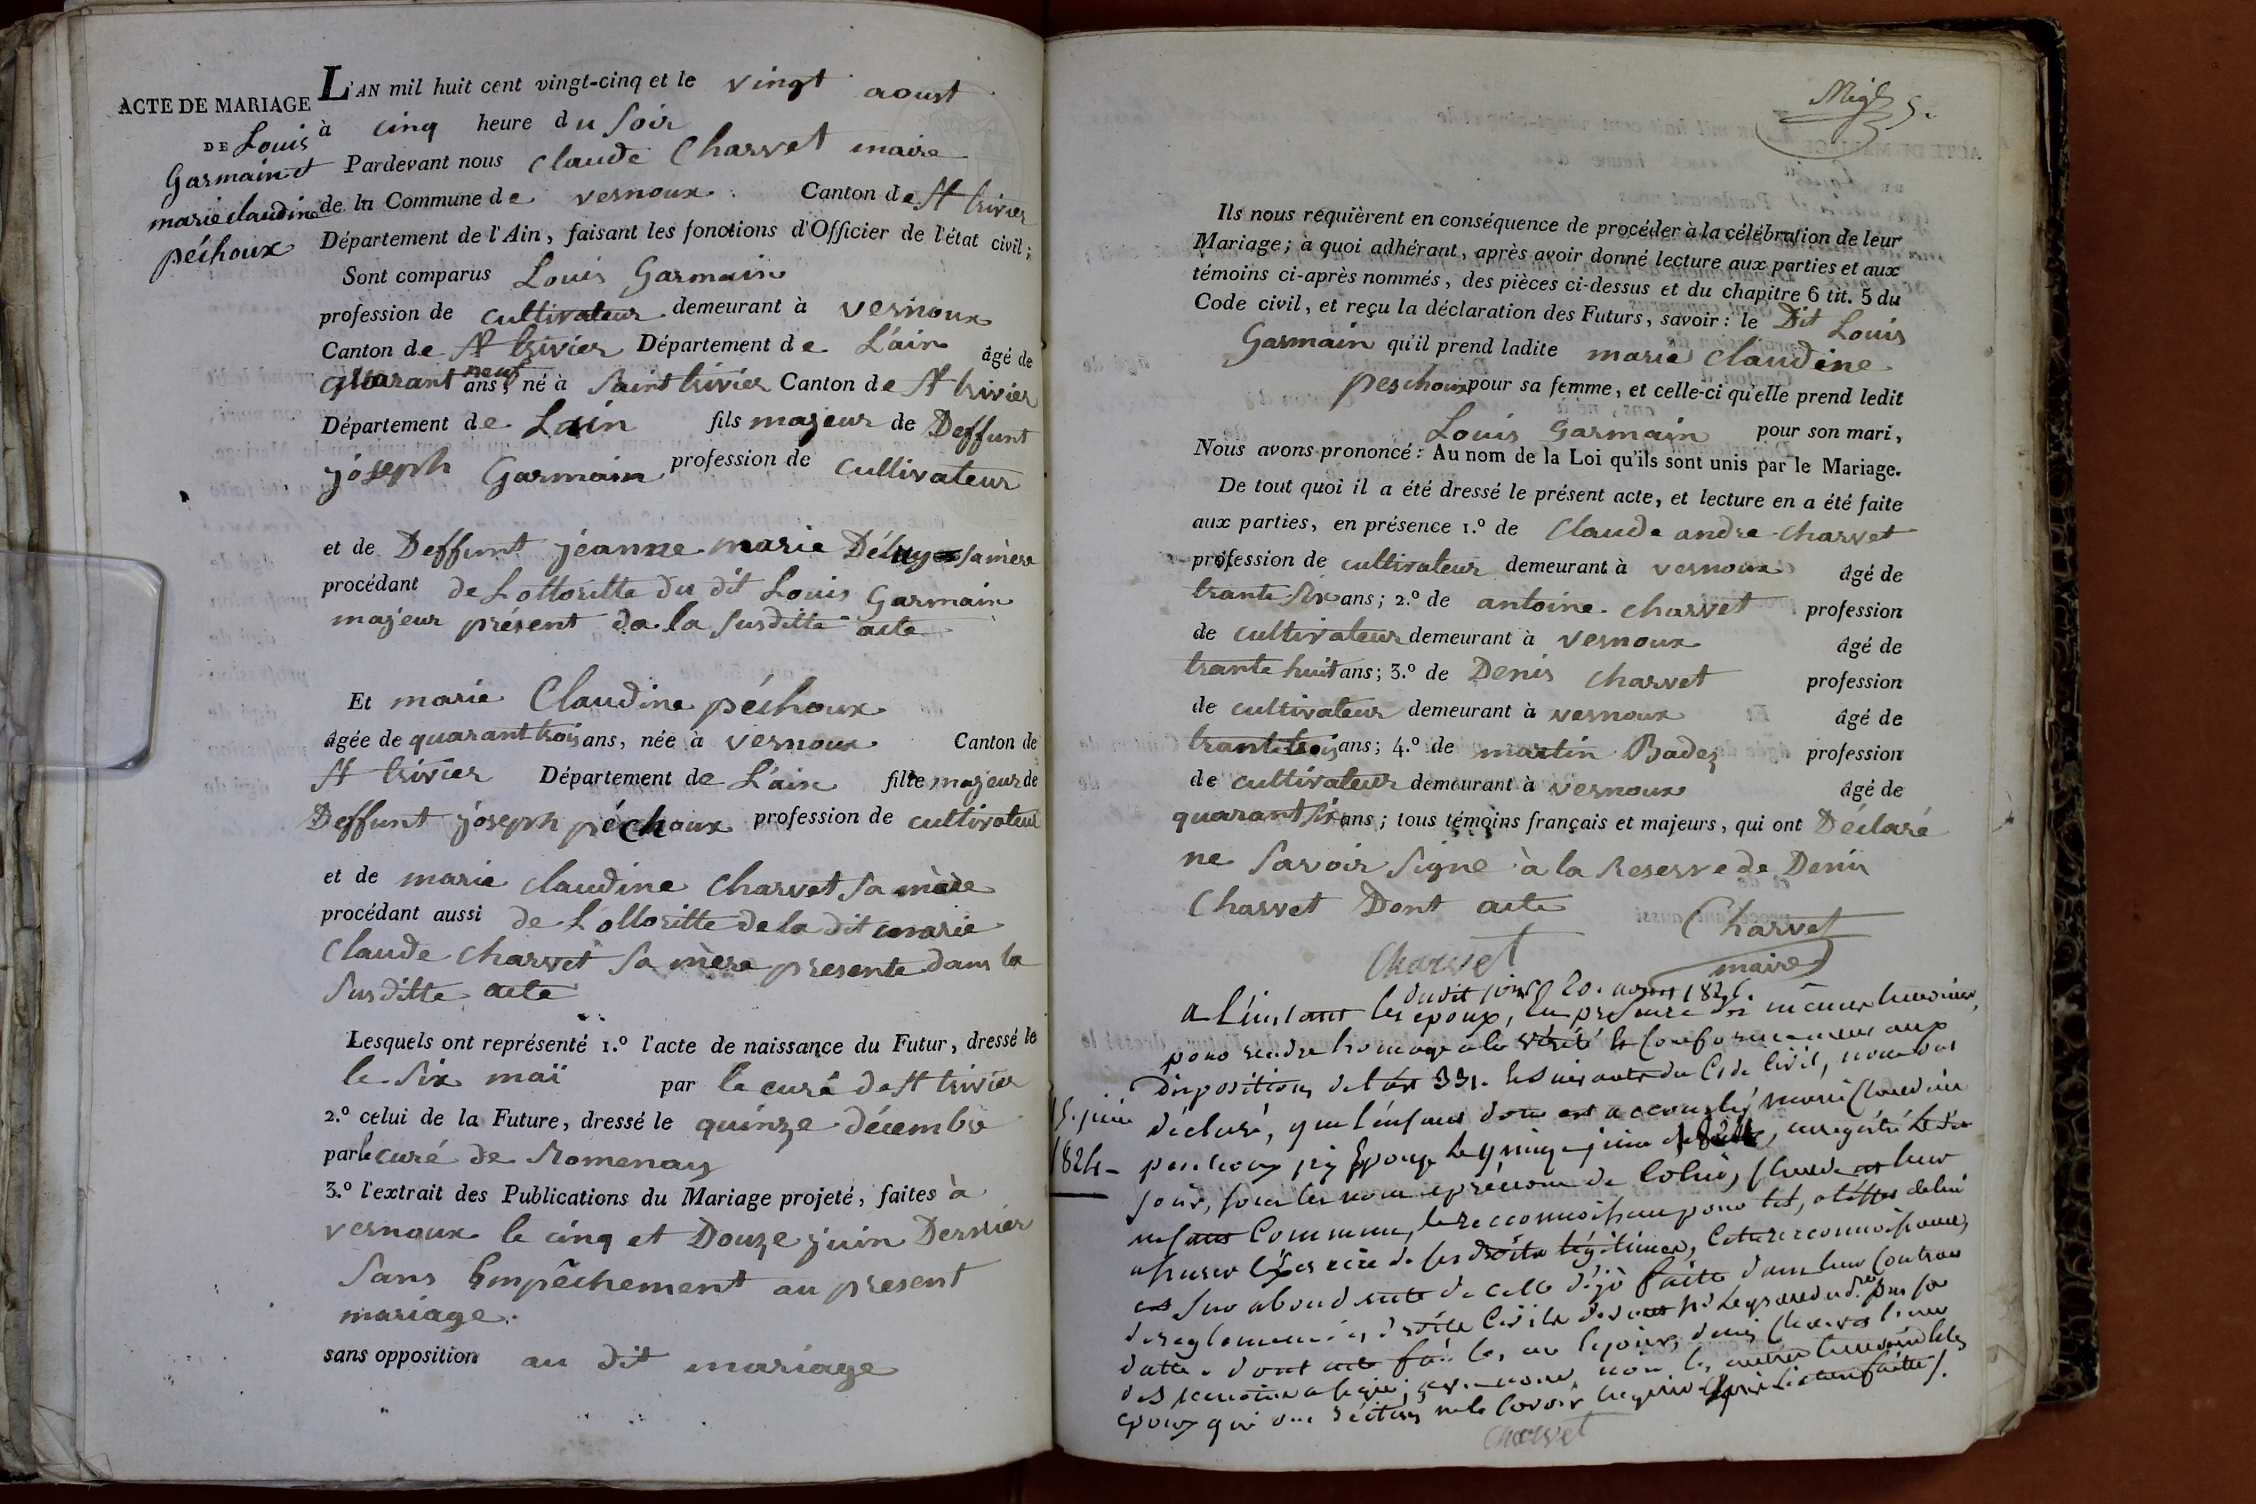 ACTE DE MARIAGE
DE Louis
Garmain et
marie claudine
péchoux
L'AN mil huit cent vingt-cinq et le vingt aoust
à cinq heure du soir
Pardevant nous Claude Charvet maire
de la Commune de vernoux Canton de St trivier
Département de l'Ain, faisant les fonctions d'Officier de l'état civil;
Sont comparus Louis Garmain
profession de cultivateur demeurant à vernoux
Canton de St trivier Département de L'ain âgé de
quarant neuf ans, né à Saint trivier Canton de St trivier
Département de Lain fils majeur de Deffunt
joseph Garmain profession de cultivateur
et de Deffunt jeanne marie sa mère
procédant de Lottoritte du dit Louis Garmain
majeur présent da la susditte acte
Et marie Claudine péchoux
âgée de quarant trois ans, née à vernoux Canton de
St trivier Département de L'ain fille majeur de
Deffunt joseph péchoux profession de cultivateur
et de marie claudine Charvet sa mère
procédant aussi de Lottoritte de la dit marie
Claude Charvet sa mère presente dans la
susditte acte
Lesquels ont représenté 1.º l'acte de naissance du Futur, dressé le
le six maï par le curé de St trivier
2.º celui de la Future, dressé le quinze décembre
par le curé de Romenay
3.º l'extrait des Publications du Mariage projeté, faites à
vernoux le cinq et Douze juin Dernier
Sans Empêchement au present
mariage.
sans opposition au dit mariage
5.
Ils nous requièrent en conséquence de procéder à la célébration de leur
Mariage; à quoi adhérant, après avoir donné lecture aux parties et aux
témoins ci-après nommés, des pièces ci-dessus et du chapitre 6 tit. 5 du
Code civil, et reçu la déclaration des Futurs, savoir: le Dit Louis
Garmain qu'il prend ladite marie Claudine
peschoux pour sa femme, et celle-ci qu'elle prend ledit
Louis Garmain pour son mari,
Nous avons prononcé: Au nom de la Loi qu'ils sont unis par le Mariage.
De tout quoi il a été dressé le présent acte, et lecture en a été faite
aux parties, en présence 1.º de Claude andre Charvet
profession de cultivateur demeurant à vernoux âgé de
trante six ans; 2.º de antoine Charvet profession
de cultivateur demeurant à vernoux âgé de
trante huit ans; 3.º de Denis Charvet profession
de cultivateur demeurant à vernoux âgé de
trante trois ans; 4.º de martin Badez profession
de cultivateur demeurant à vernoux âgé de
quarant six ans; tous témoins français et majeurs, qui ont Déclaré
ne savoir signe à la Reserve de Denis
Charvet Dont acte
Charvet
Charvet
maire
dudit jour 20. aoust 182
a L'instant les epoux, en presence des mêmes temoins,
pour rendre homage a la vérité et conformement aux
Dispositions de l'art 331. et suivants du Code Civil, nous ont
15. juin
1824
déclaré, que l'enfant dont est accouchée marie Claudine
épouse le quinze juin 1824, enregistré le dit
jour, sous les nom et prénom de
enfant commun, le reconnoissent pour tel,
l'exercice de ses droits légitimes, cette reconnoissance
est surabondante de celle déjà faitte dans leur contrat
datte. dont acte
epoux qui ont
Charvet